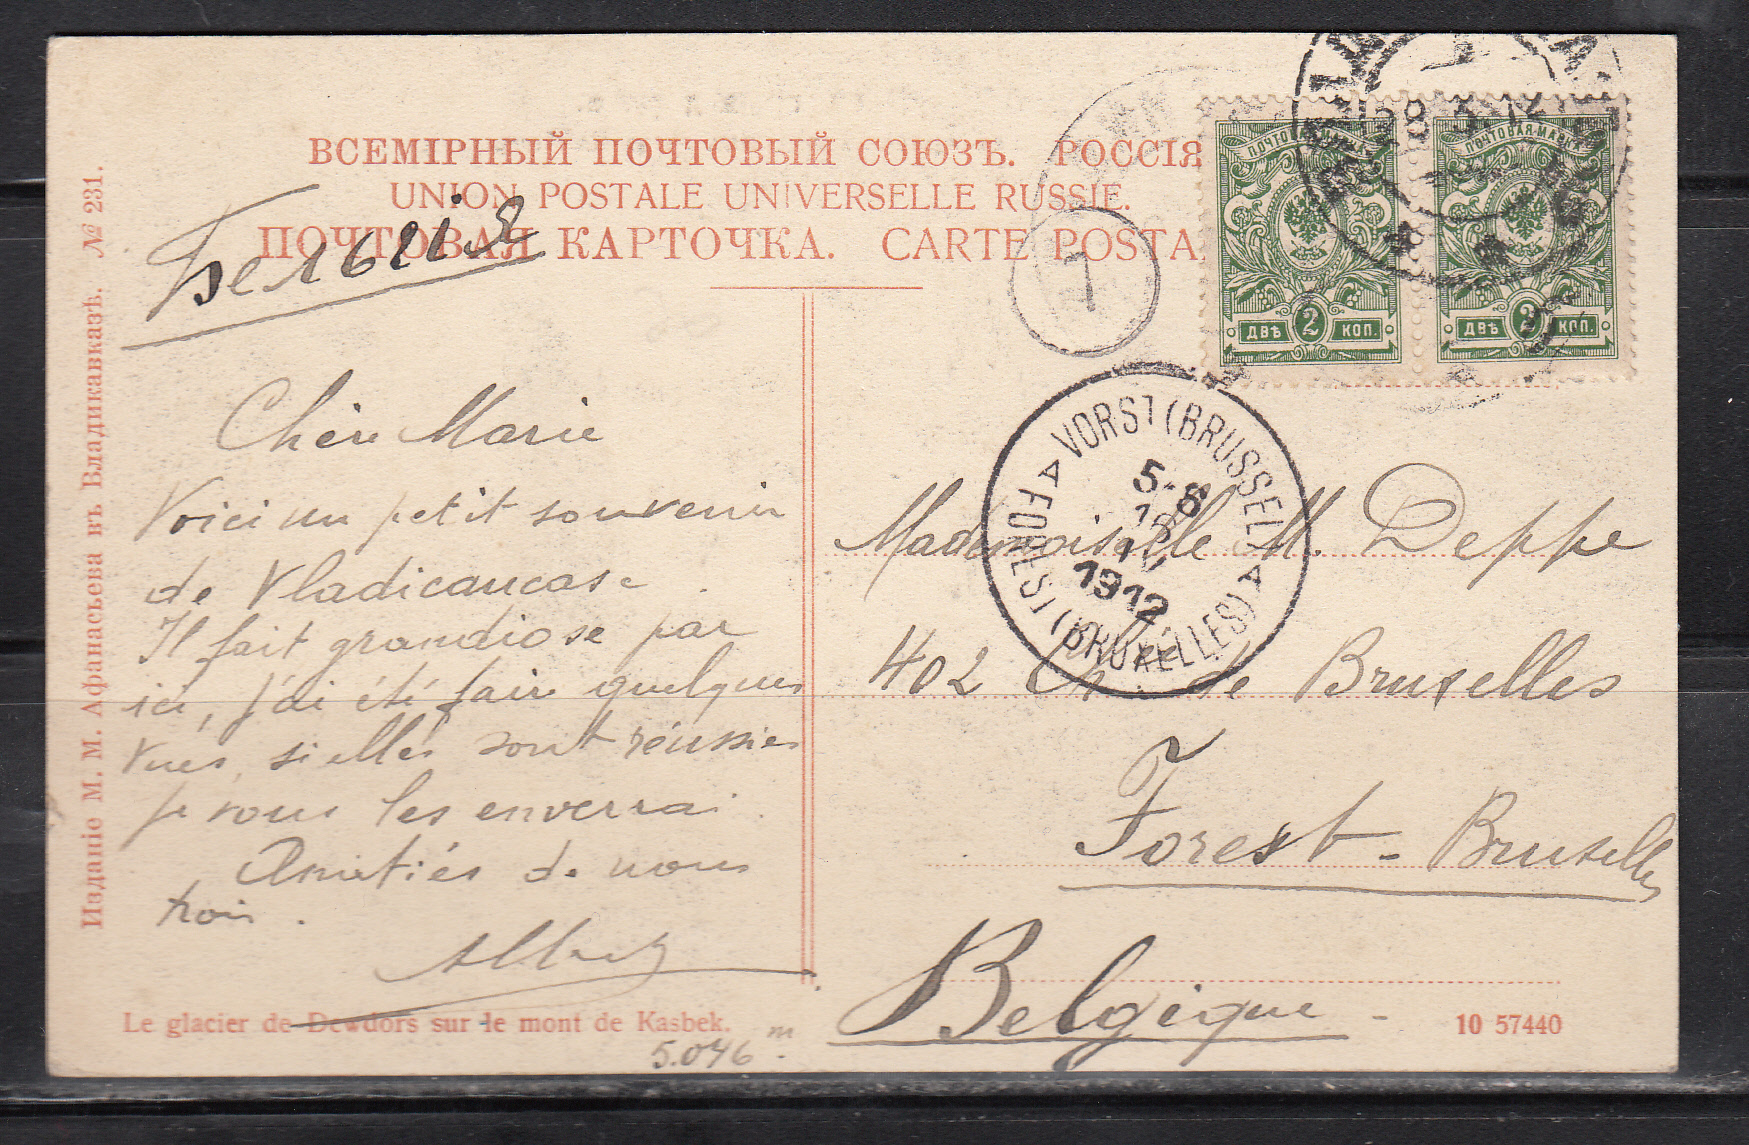 ВСЕМІРНЫЙ ПОЧТОВЫЙ СОЮЗЪ. РОССІЯ
UNION POSTALE UNIVERSELLE RUSSIE.
ПОЧТОВАЯ КАРТОЧКА. CARTE POSTA
Бельгія
Издание М. М. Афанасьева въ Владикавказѣ. № 231.
Chère Marie
Voici un petit souvenir
de Vladicaucase.
Il fait grandiose par
ici, j'ai été fair quelques
vues, si elles sont réussies
je vous les enverrai.
Amitiés de nous
trois.
Albert
Le glacier de Dewdors sur le mont de Kasbek.
5.046 m.
ПОЧТОВАЯ МАРКА
ДВѢ 2 КОП.
ПОЧТОВАЯ МАРКА
ДВѢ 2 КОП.
7
VORST (BRUSSEL) A
5-6
1912
A FOREST (BRUXELLES)
Mademoiselle M. Deppe
402 Ch. ée de Bruxelles
Forest - Bruxelles
Belgique -
10 57440